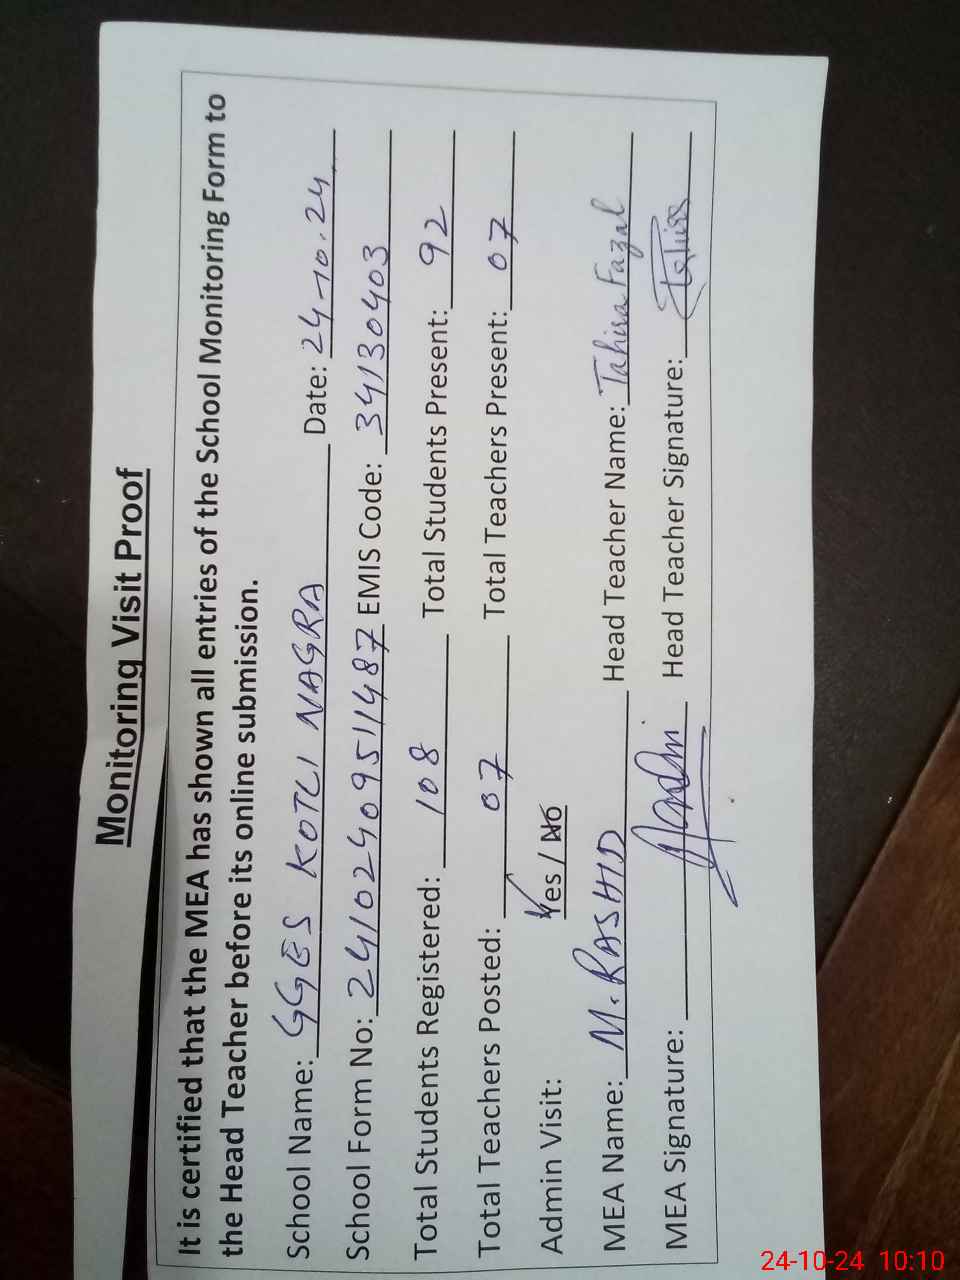 Monitoring Visit Proof
It is certified that the MEA has shown all entries of the School Monitoring Form to
the Head Teacher before its online submission.
School Name: GGES KOTLI NAGRA Date: 24-10.24
School Form No: 24102409511487 EMIS Code: 34130403
Total Students Registered: 108 Total Students Present: 92
Total Teachers Posted: 07 Total Teachers Present: 07
Admin Visit: Yes / No
MEA Name: M. RASHID Head Teacher Name: Tahira Fazal
MEA Signature: Head Teacher Signature: Tahira
24-10-24 10:10